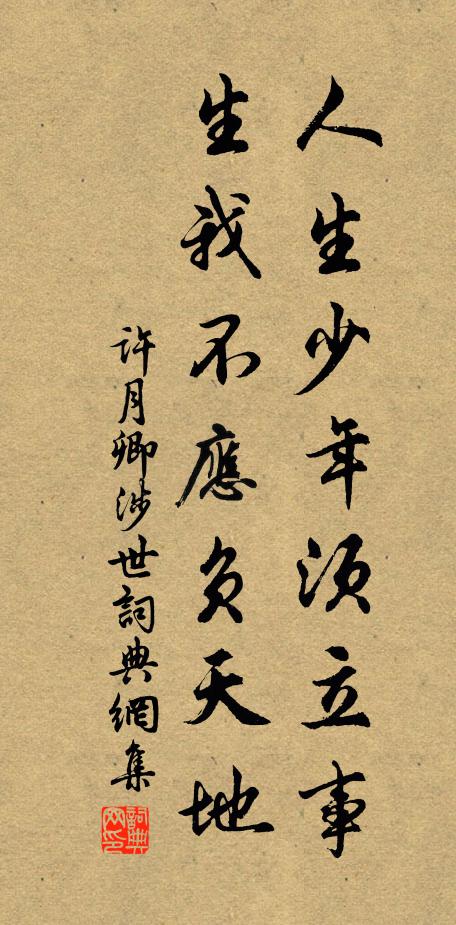 人生少年須立事
生我不應負天地
許月卿涉世詞典網集
詞典網印